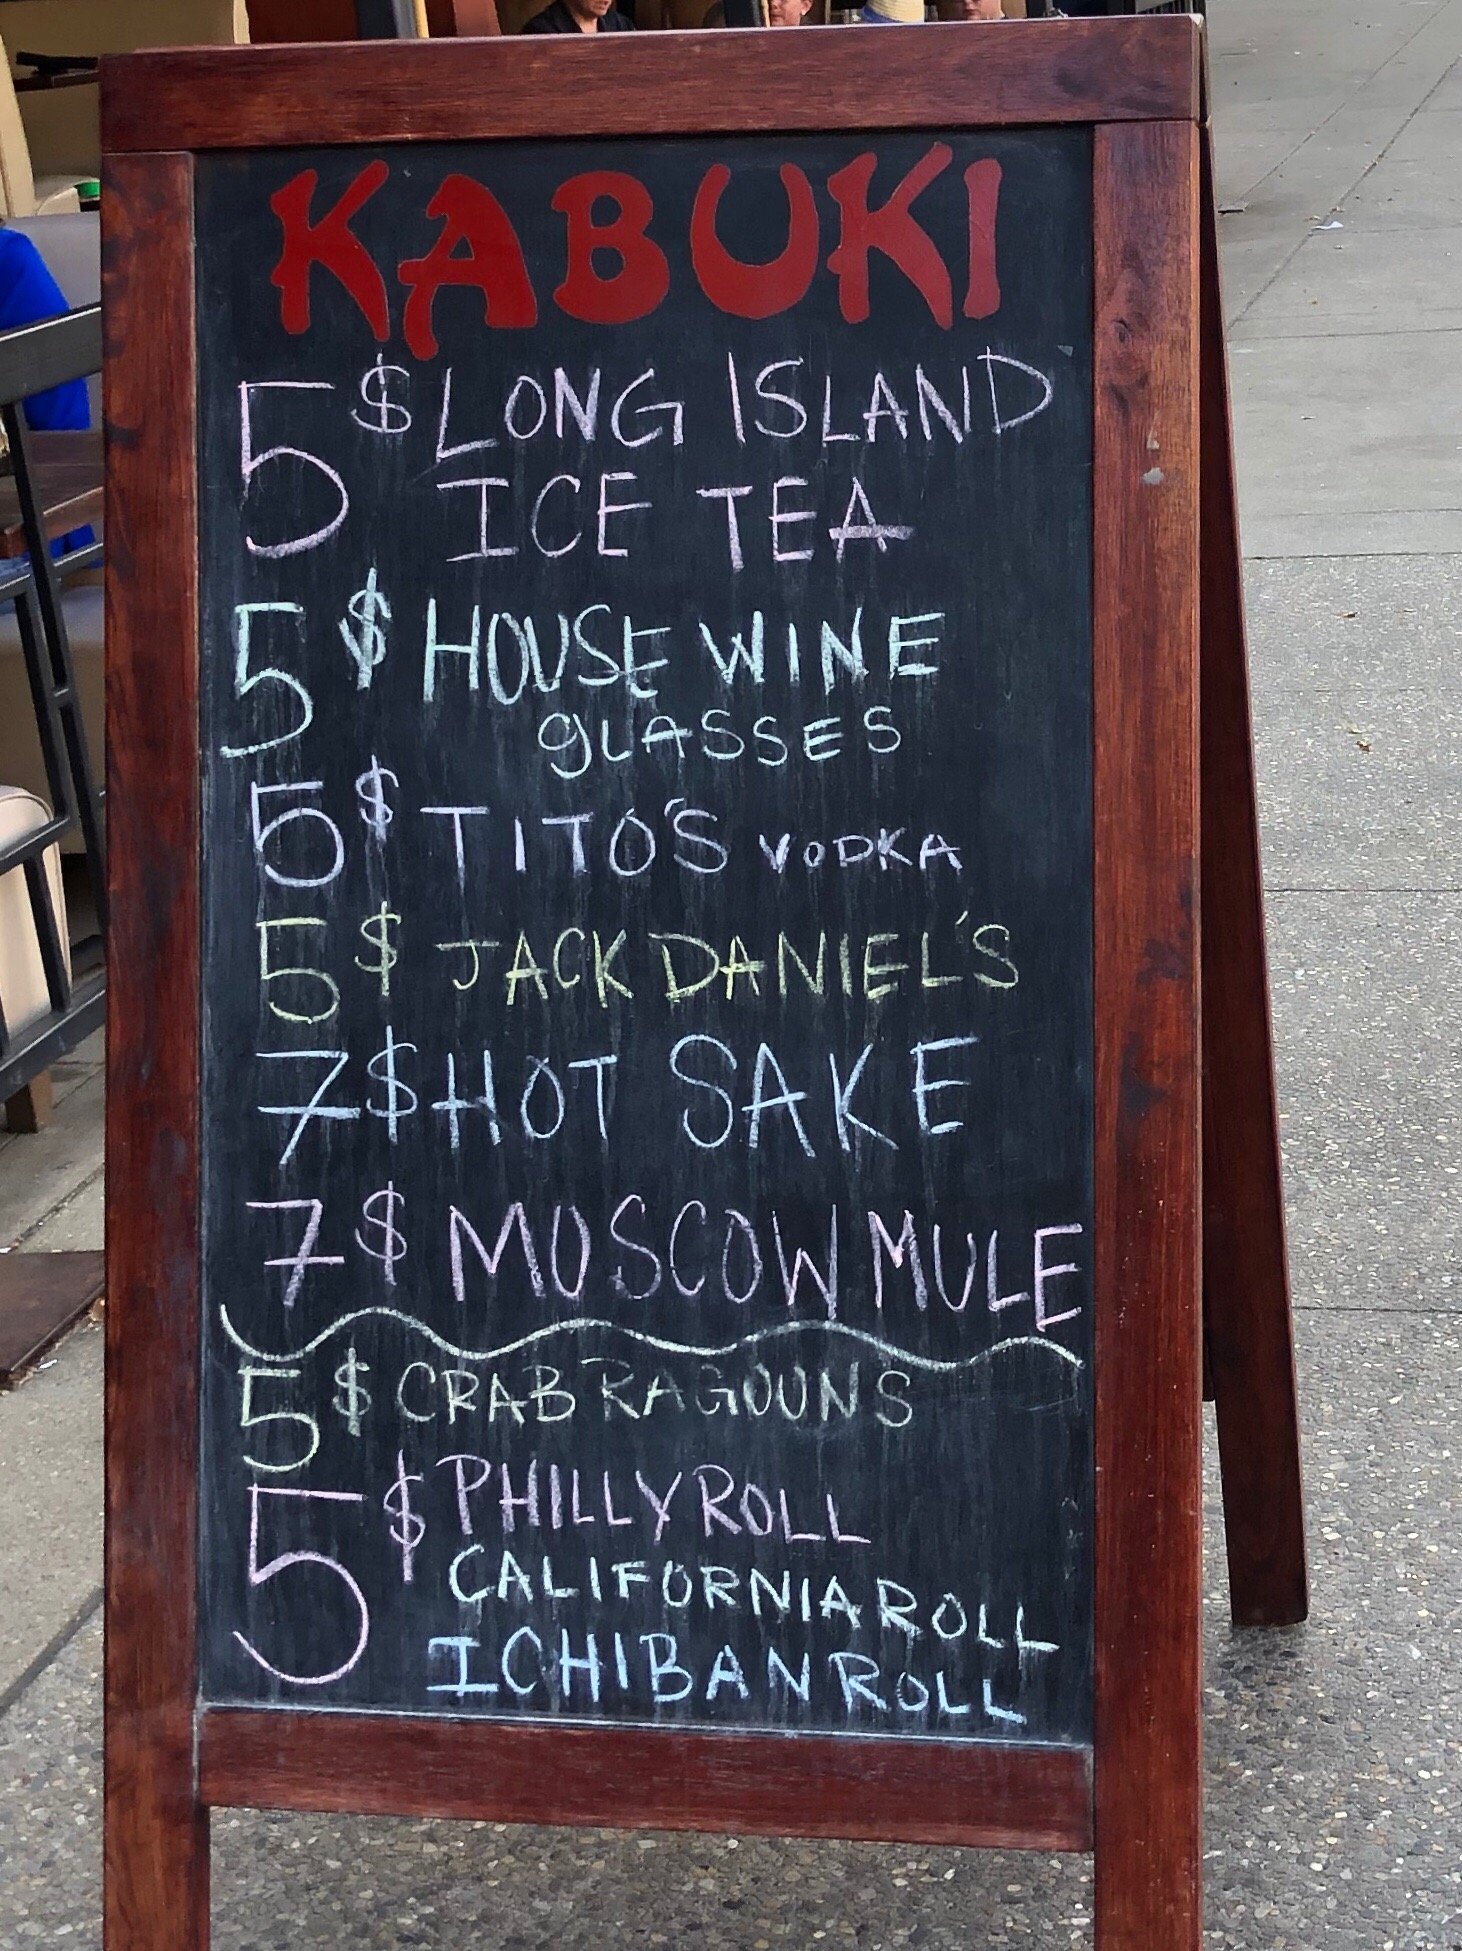 KABUKI
5$ LONG ISLAND
ICE TEA
5$ HOUSE WINE
GLASSES
5$ TITO'S VODKA
5$ JACK DANIEL'S
7$ HOT SAKE
7$ MOSCOW MULE
5$ CRAB RAGOUNS
5$ PHILLY ROLL
CALIFORNIA ROLL
ICHIBAN ROLL